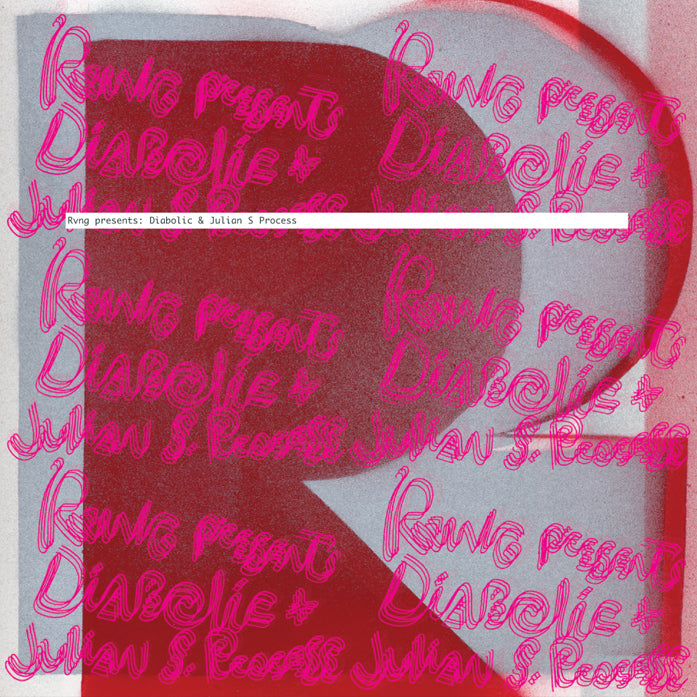 Rvng presents Rvng presents
Diabolic + Diabolic +
Julian S. Process Julian S. Process
Rvng presents: Diabolic & Julian S Process
Rvng presents Rvng presents
Diabolic + Diabolic +
Julian S. Process Julian S. Process
Rvng presents Rvng presents
Diabolic + Diabolic +
Julian S. Process Julian S. Process